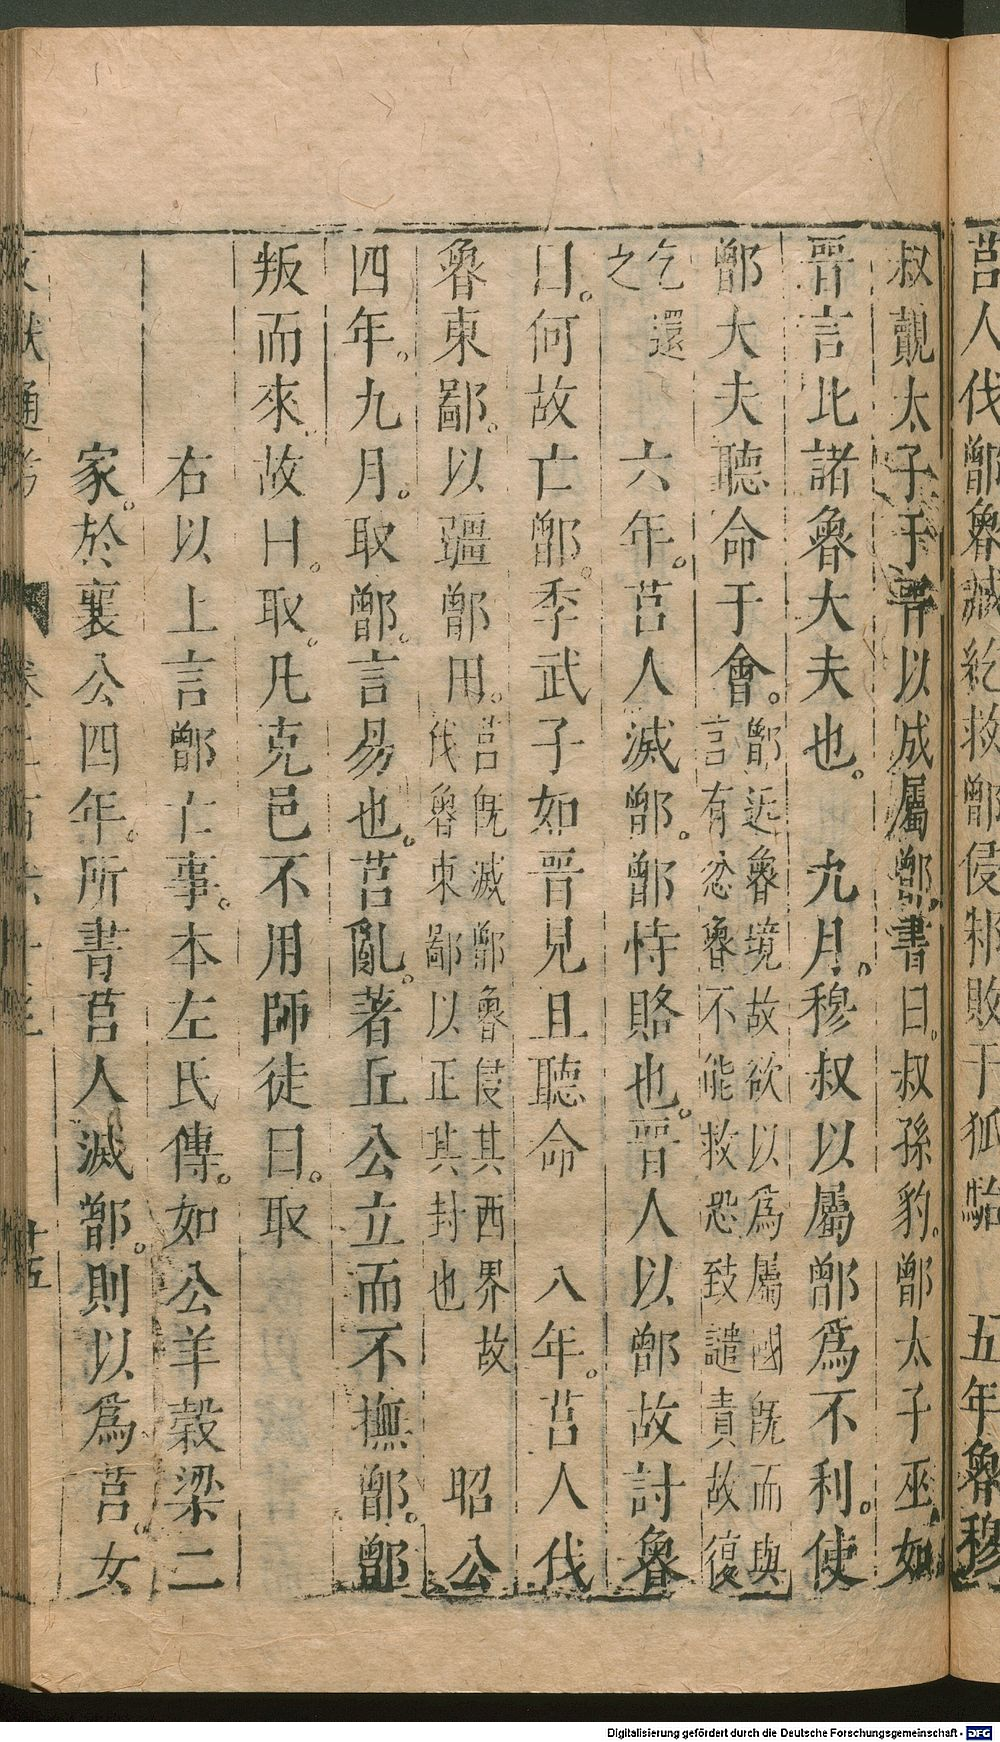 莒人伐鄫魯臧紇救鄫侵邾敗于狐駘　五年魯穆
叔覿太子于晉以成屬鄫書曰叔孫豹鄫太子巫如
晉言比諸魯大夫也。　九月。穆叔以屬鄫爲不利。使
鄫大夫聽命于會。鄫近魯境故欲以爲屬國旣而與
言有忿魯不能救恐致譴責故復
乞還
之
六年。莒人滅鄫。鄫恃賂也。晉人以鄫故討魯
曰。何故亡鄫。季武子如晉見且聽命　八年。莒人伐
魯東鄙。以疆鄫用。莒旣滅鄫魯侵其西界故
伐魯東鄙以正其封也
昭公
四年。九月。取鄫。言易也。莒亂。著丘公立而不撫鄫。鄫
叛而來。故曰。取。凡克邑不用師徒曰。取
右以上言鄫亡事。本左氏傳。如公羊穀梁二
家。於襄公四年。所書莒人滅鄫。則以爲莒。女
文獻通考
十五
Digitalisierung gefördert durch die Deutsche Forschungsgemeinschaft - DFG